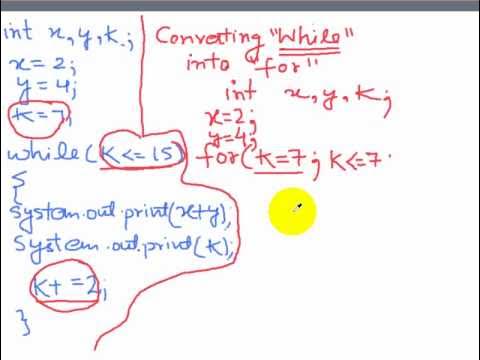 int x,y,k;
x=2;
y=4;
k=7;
while(k<=15)
{
system.out.print(x+y);
System.out.print(k);
k+=2;
}
Converting "While"
into "for"
int x,y,k;
x=2;
y=4;
for(k=7; k<=7